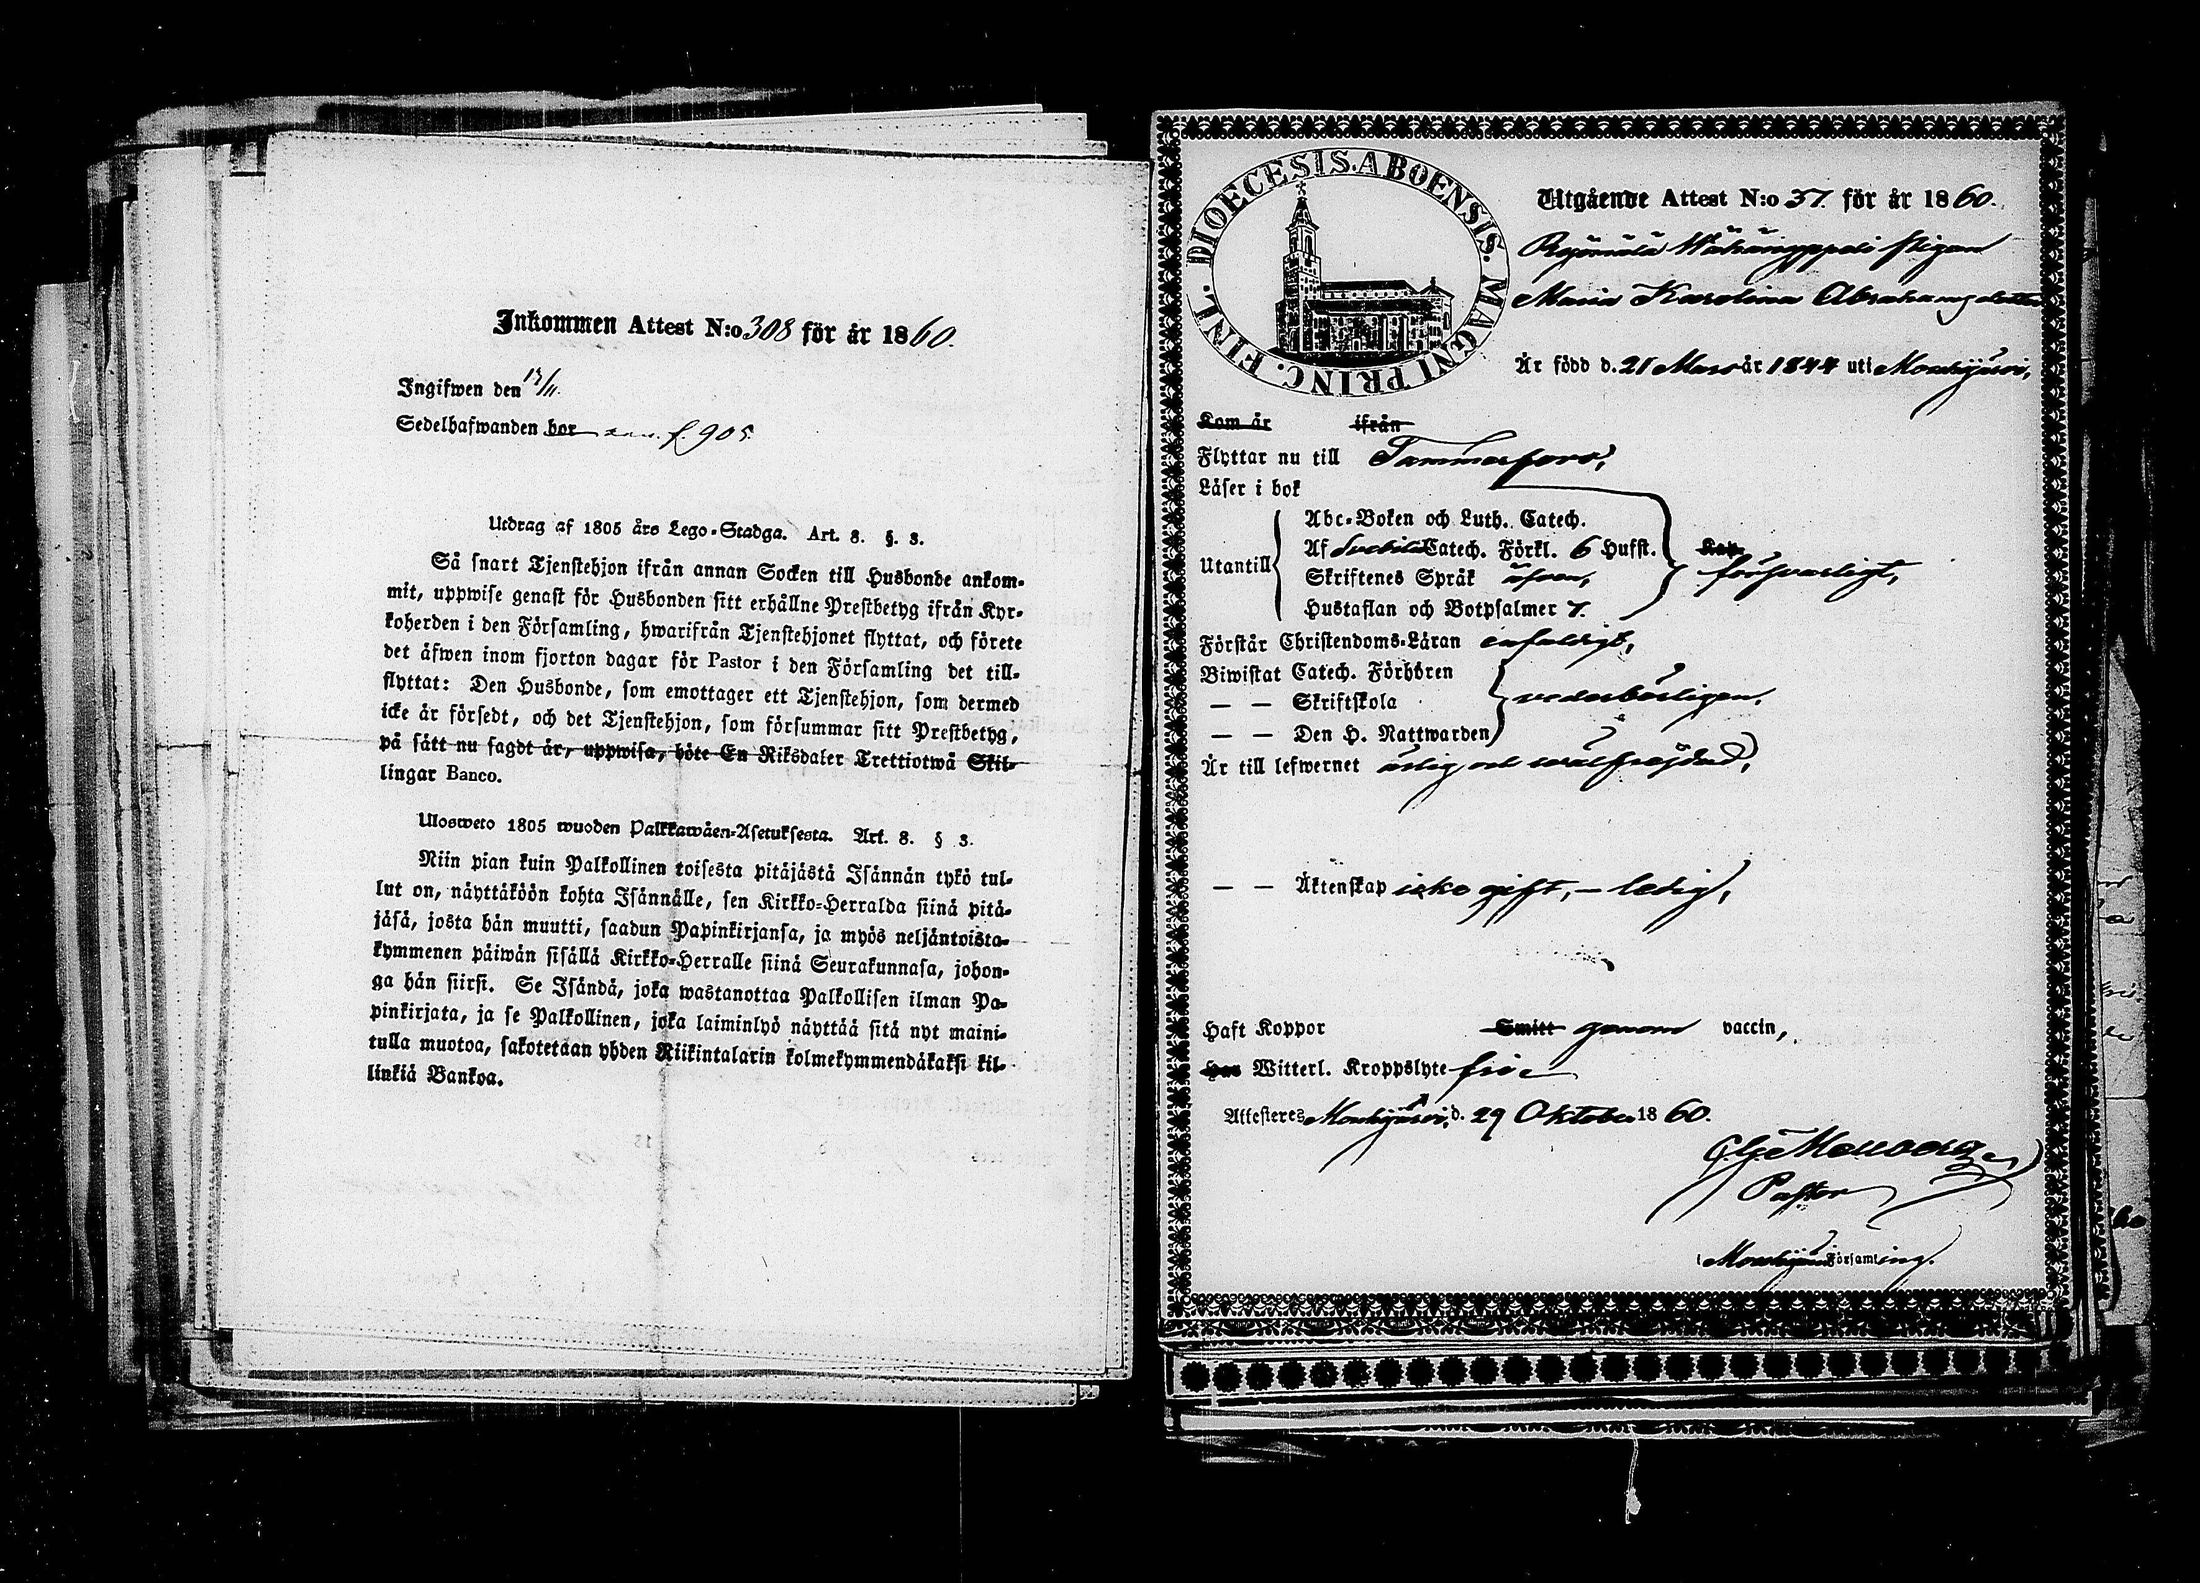 Inkommen Attest N:o 308 för år 1860.
Ingifwen den 13/11.
Sedelhafwanden bor f. 905
Utdrag af 1805 års Lego-Stadga. Art. 8. §. 3.
Så snart Tjenstehjon ifrån annan Socken till Husbonde ankom-
mit, uppwise genast för Husbonden sitt erhållne Prestbetyg ifrån Kyr-
koherden i den Församling, hwarifrån Tjenstehjonet flyttat, och förete
det äfwen inom fjorton dagar för Pastor i den Församling det till-
flyttat: Den Husbonde, som emottager ett Tjenstehjon, som dermed
icke är försedt, och det Tjenstehjon, som försummar sitt Prestbetyg,
på sätt nu sagdt är, uppwisa, böte En Riksdaler Trettiotwå Skil-
lingar Banco.
Ulosweto 1805 wuoden Palkkawäen-Asetuksesta. Art. 8. § 3.
Niin pian kuin Palkollinen toisesta pitäjästä Isännän tykö tul-
lut on, näyttäköön kohta Isännälle, sen Kirkko-Herralda siinä pitä-
jäsä, josta hän muutti, saadun Papinkirjansa, ja myös neljäntoista-
kymmenen päiwän sisällä Kirkko-Herralle siinä Seurakunnasa, johon-
ga hän siirsi. Se Isändä, joka wastanottaa Palkollisen ilman Pa-
pinkirjata, ja se Palkollinen, joka laiminlyö näyttää sitä nyt maini-
tulla muotoa, sakotetaan yhden Riikintalarin kolmekymmendäkaksi kil-
linkiä Bankoa.
DIOECESIS. ABOENSIS. MAGNI PRINC. FINL.
Utgående Attest N:o 37. för år 1860.
pigan
Maria Karolina Abrahamsdotter
Är född d. 21 Mars år 1844 uti Mouhijärvi,
Kom år ifrån
Flyttar nu till Tammerfors,
Läser i bok
Abc-Boken och Luth. Catech.
Utantill Af Svebilii Catech. Förkl. 6 Hufst. försvarligt,
Skriftenes Språk äfven,
Hustaflan och Botpsalmer 7.
Förstår Christendoms-Läran enfaldigt,
Biwistat Catech. Förhören
— — Skriftskola vederbörligen.
— — Den H. Nattwarden
Är till lefwernet ärlig och välfräjdad,
— — Äktenskap icke gift, – ledig,
Haft Koppor Smitt genom vaccin,
Har Witterl. Kroppslyte fri
Attesteres Mouhijärvi, d. 29 Oktober 1860.
Pastor
i Mouhijärvi Församling.